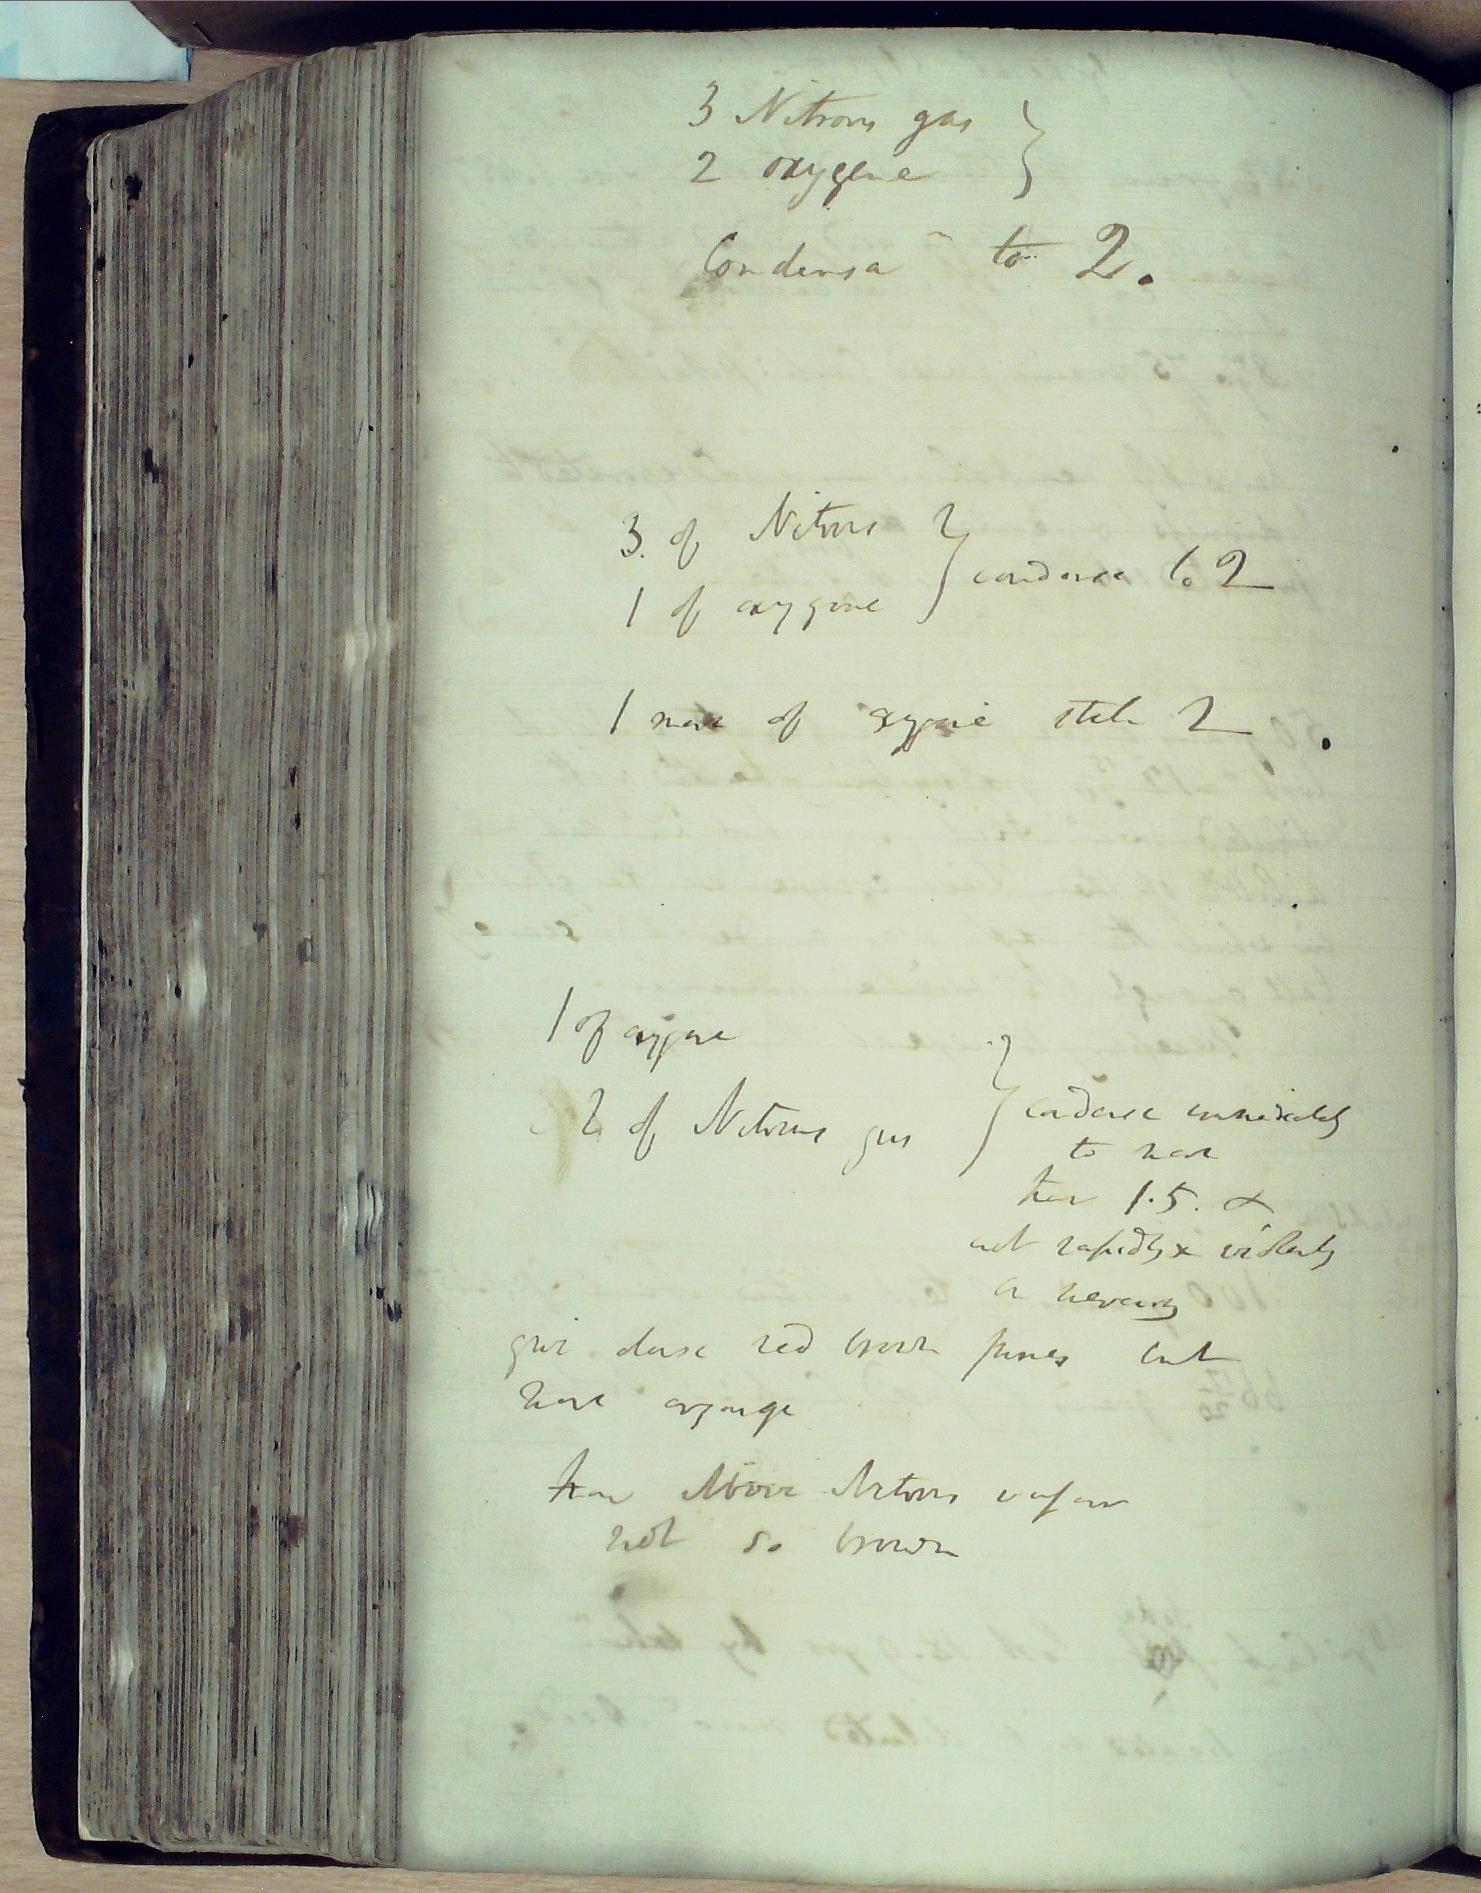 3 Nitrous gas
2 oxygene
Condensa to 2.
3. of Nitrous
1 of oxygene } condense to 2
1 more of oxygene still 2.
1 of oxygene
2 of Nitrous gas } condense immediately
to more
than 1.5. &
act rapidly & violently
on mercury
give dense red brown fumes but
more orange
than above Nitrous vapour
not so brown